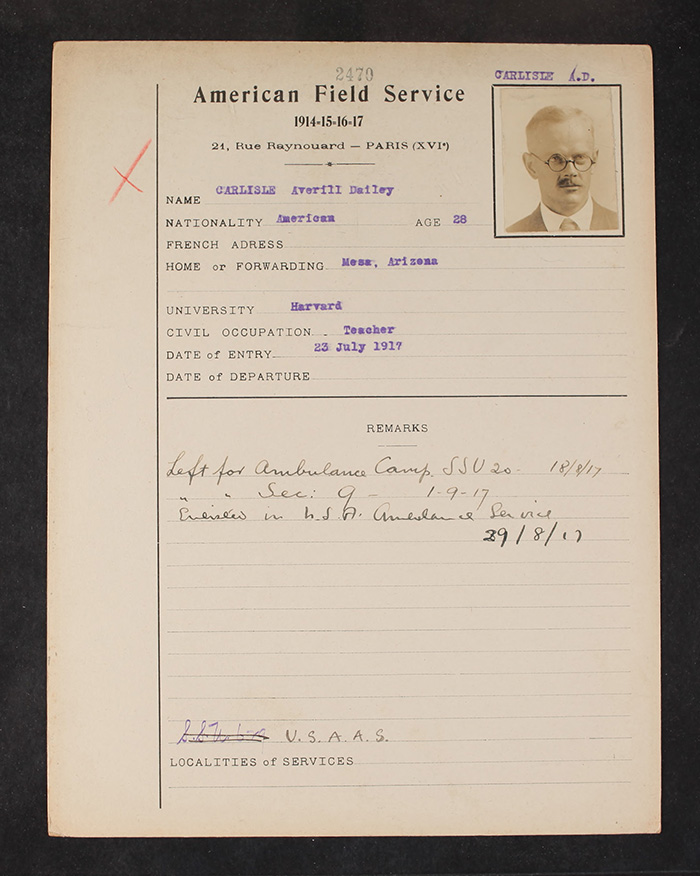 2470
CARLISLE A.D.
American Field Service
1914-15-16-17
21, Rue Raynouard — PARIS (XVIe)
NAME CARLISLE Averill Dailey
NATIONALITY American AGE 28
FRENCH ADRESS
HOME or FORWARDING Mesa, Arizona
UNIVERSITY Harvard
CIVIL OCCUPATION Teacher
DATE of ENTRY 23 July 1917
DATE of DEPARTURE
REMARKS
Left for Ambulance Camp. SSU 20 - 18/8/17
" " Sec: 9 - 1-9-17
Enlisted in U.S.A. Ambulance Service
29/8/17
U.S.A.A.S.
LOCALITIES of SERVICES